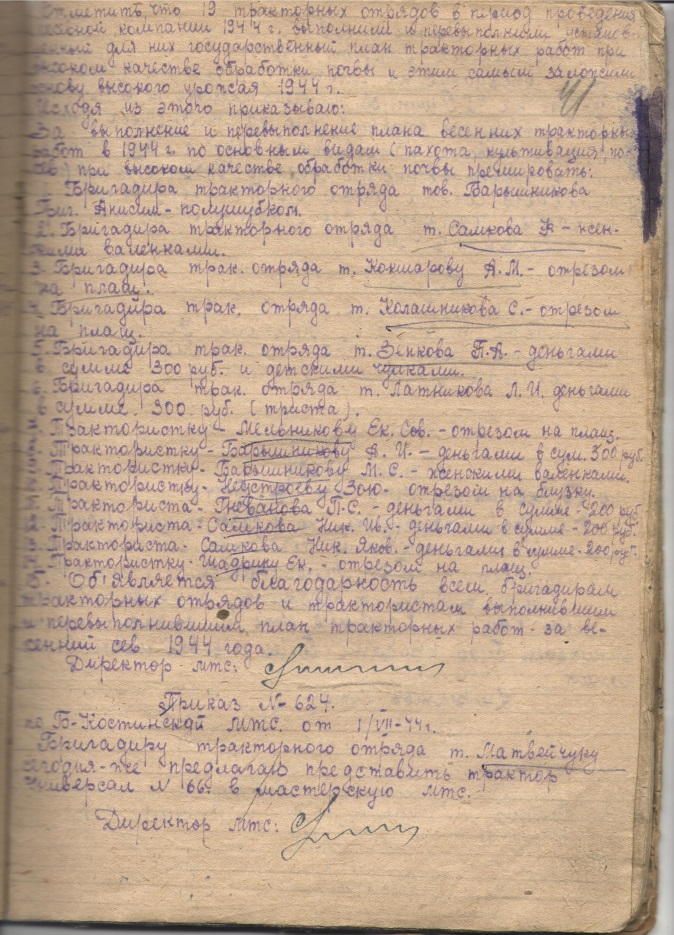 Отметить, что 19 тракторных отрядов в период проведения
компании 1944 г. выполнили и перевыполнили установ-
ленный для них государственный план тракторных работ при
высоком качестве обработки почвы и этим самым заложили
основу высокого урожая 1944 г.
41
Исходя из этого приказываю:
За выполнение и перевыполнение плана весенних тракторных
работ в 1944 г. по основным видам (пахота, культивация, по-
сев) при высоком качестве обработки почвы премировать:
Бригадира тракторного отряда тов. Барышникова
Анисим - полушубком.
2. Бригадира тракторного отряда т. Самкова - жен-
скими валенками.
3. Бригадира трак. отряда т. Кокшарову А.М. - отрезом
на плащ.
4. Бригадира трак. отряда т. Колашникова С. - отрезом
на плащ.
5. Бригадира трак. отряда т. Зенкова П.А. - деньгами
в сумме 300 руб. и детскими чулками.
6. Бригадира трак. отряда т. Латникова Л.И. деньгами
в сумме 300 руб. (триста).
Трактористку - Мельникову Ек. Сев. - отрезом на плащ.
Трактористку - Барышникову А.И. - деньгами в сум. 300 руб.
Трактористку - Барышникову М.С. - женскими валенками.
Трактористку - Неустроеву Зою - отрезом на блузку.
Тракториста - П.С. - деньгами в сумме - 200 руб.
Тракториста - Самкова Ник. Ив. - деньгами в сумме - 200 руб.
Тракториста - Самкова Ник. Яков. - деньгами в сумме - 200 руб.
Трактористку - Щадрину Ек. - отрезом на плащ.
Об'является благодарность всем бригадирам
тракторных отрядов и трактористам выполнившим
и перевыполнившим план тракторных работ за ве-
сенний сев 1944 года.
Директор мтс:
Приказ № 624.
по Б-Костинской мтс. от 1/VII-44 г.
Бригадиру тракторного отряда т. Матвейчуку
сегодня-же предлагаю представить трактор
Универсал № 66 в мастерскую мтс.
Директор мтс: